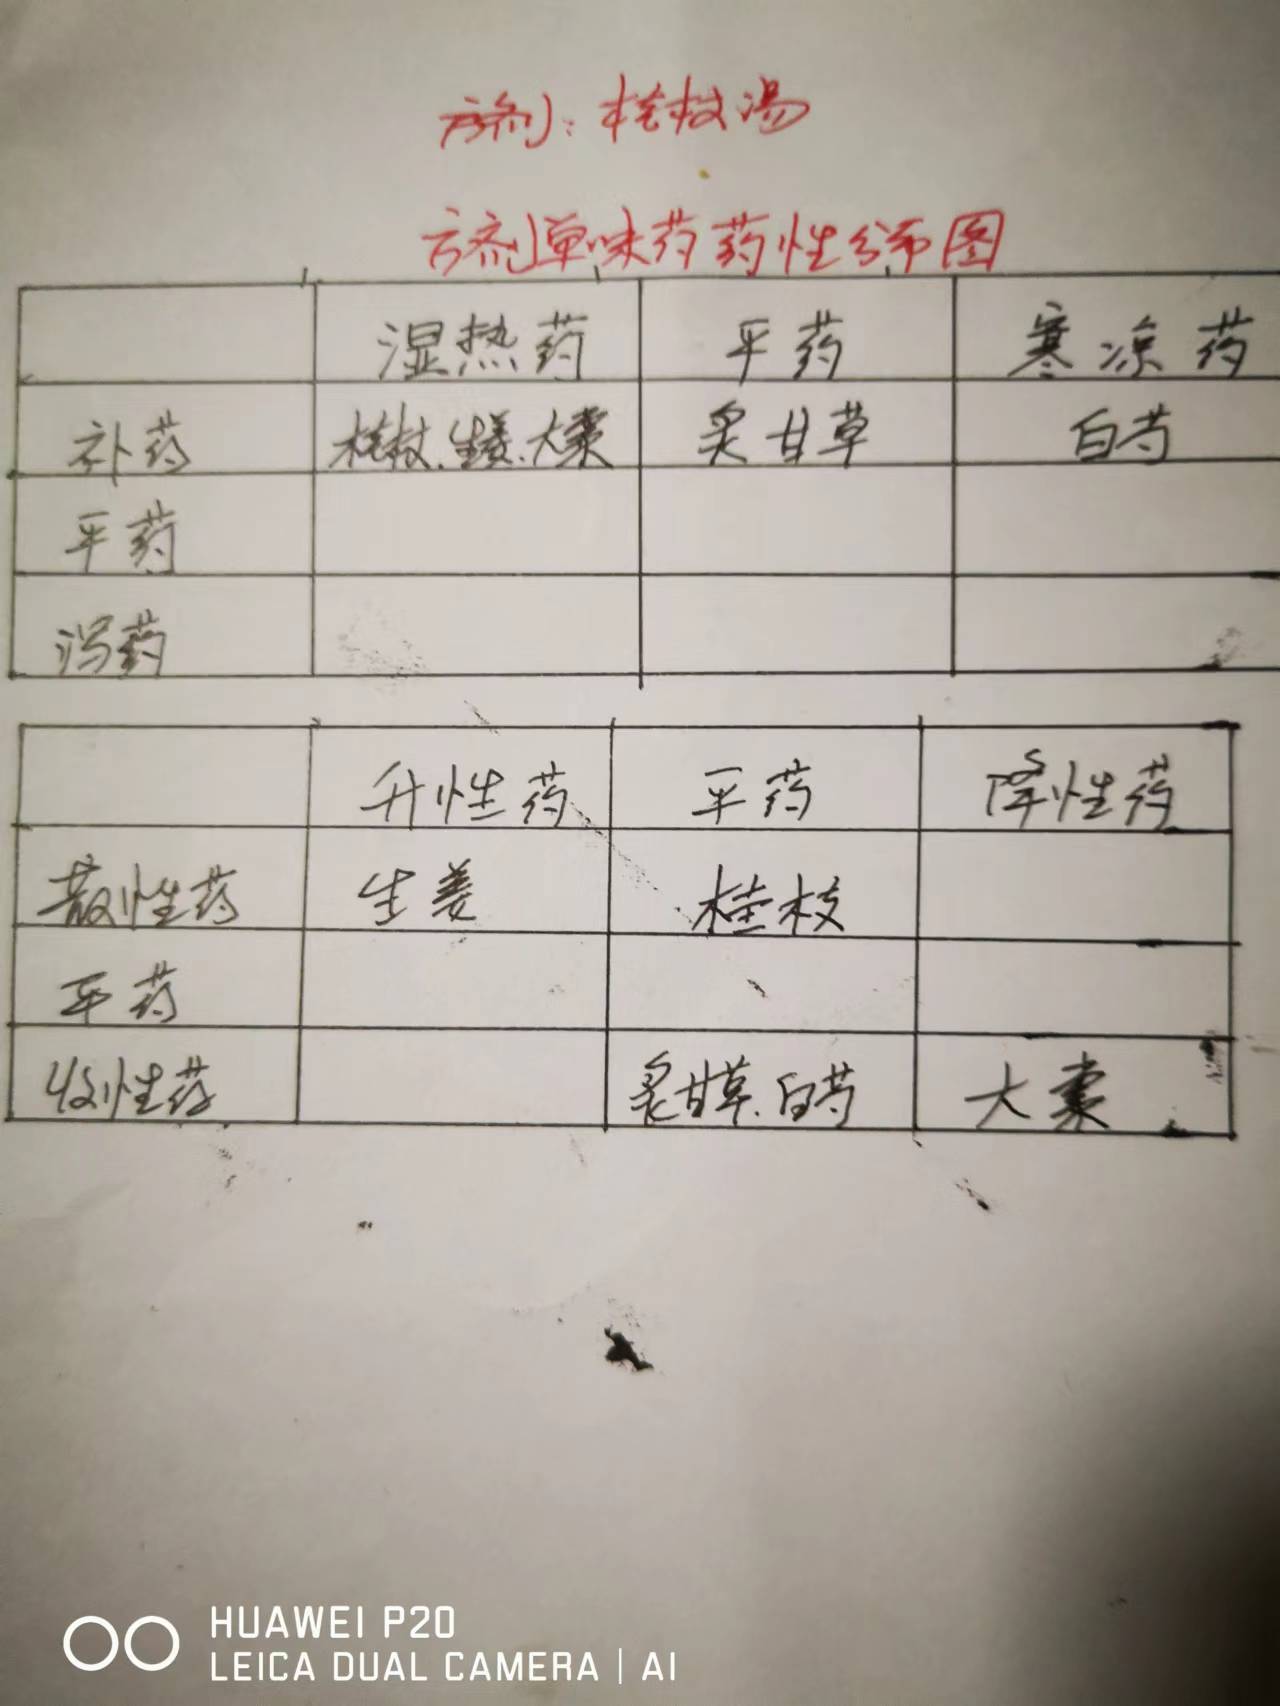 方剂：桂枝汤
方剂单味药药性分布图
湿热药 平药 寒凉药
补药 桂枝.生姜.大枣 炙甘草 白芍
平药
泻药
升性药 平药 降性药
散性药 生姜 桂枝
平药
收性药 炙甘草.白芍 大枣
HUAWEI P20
LEICA DUAL CAMERA | AI